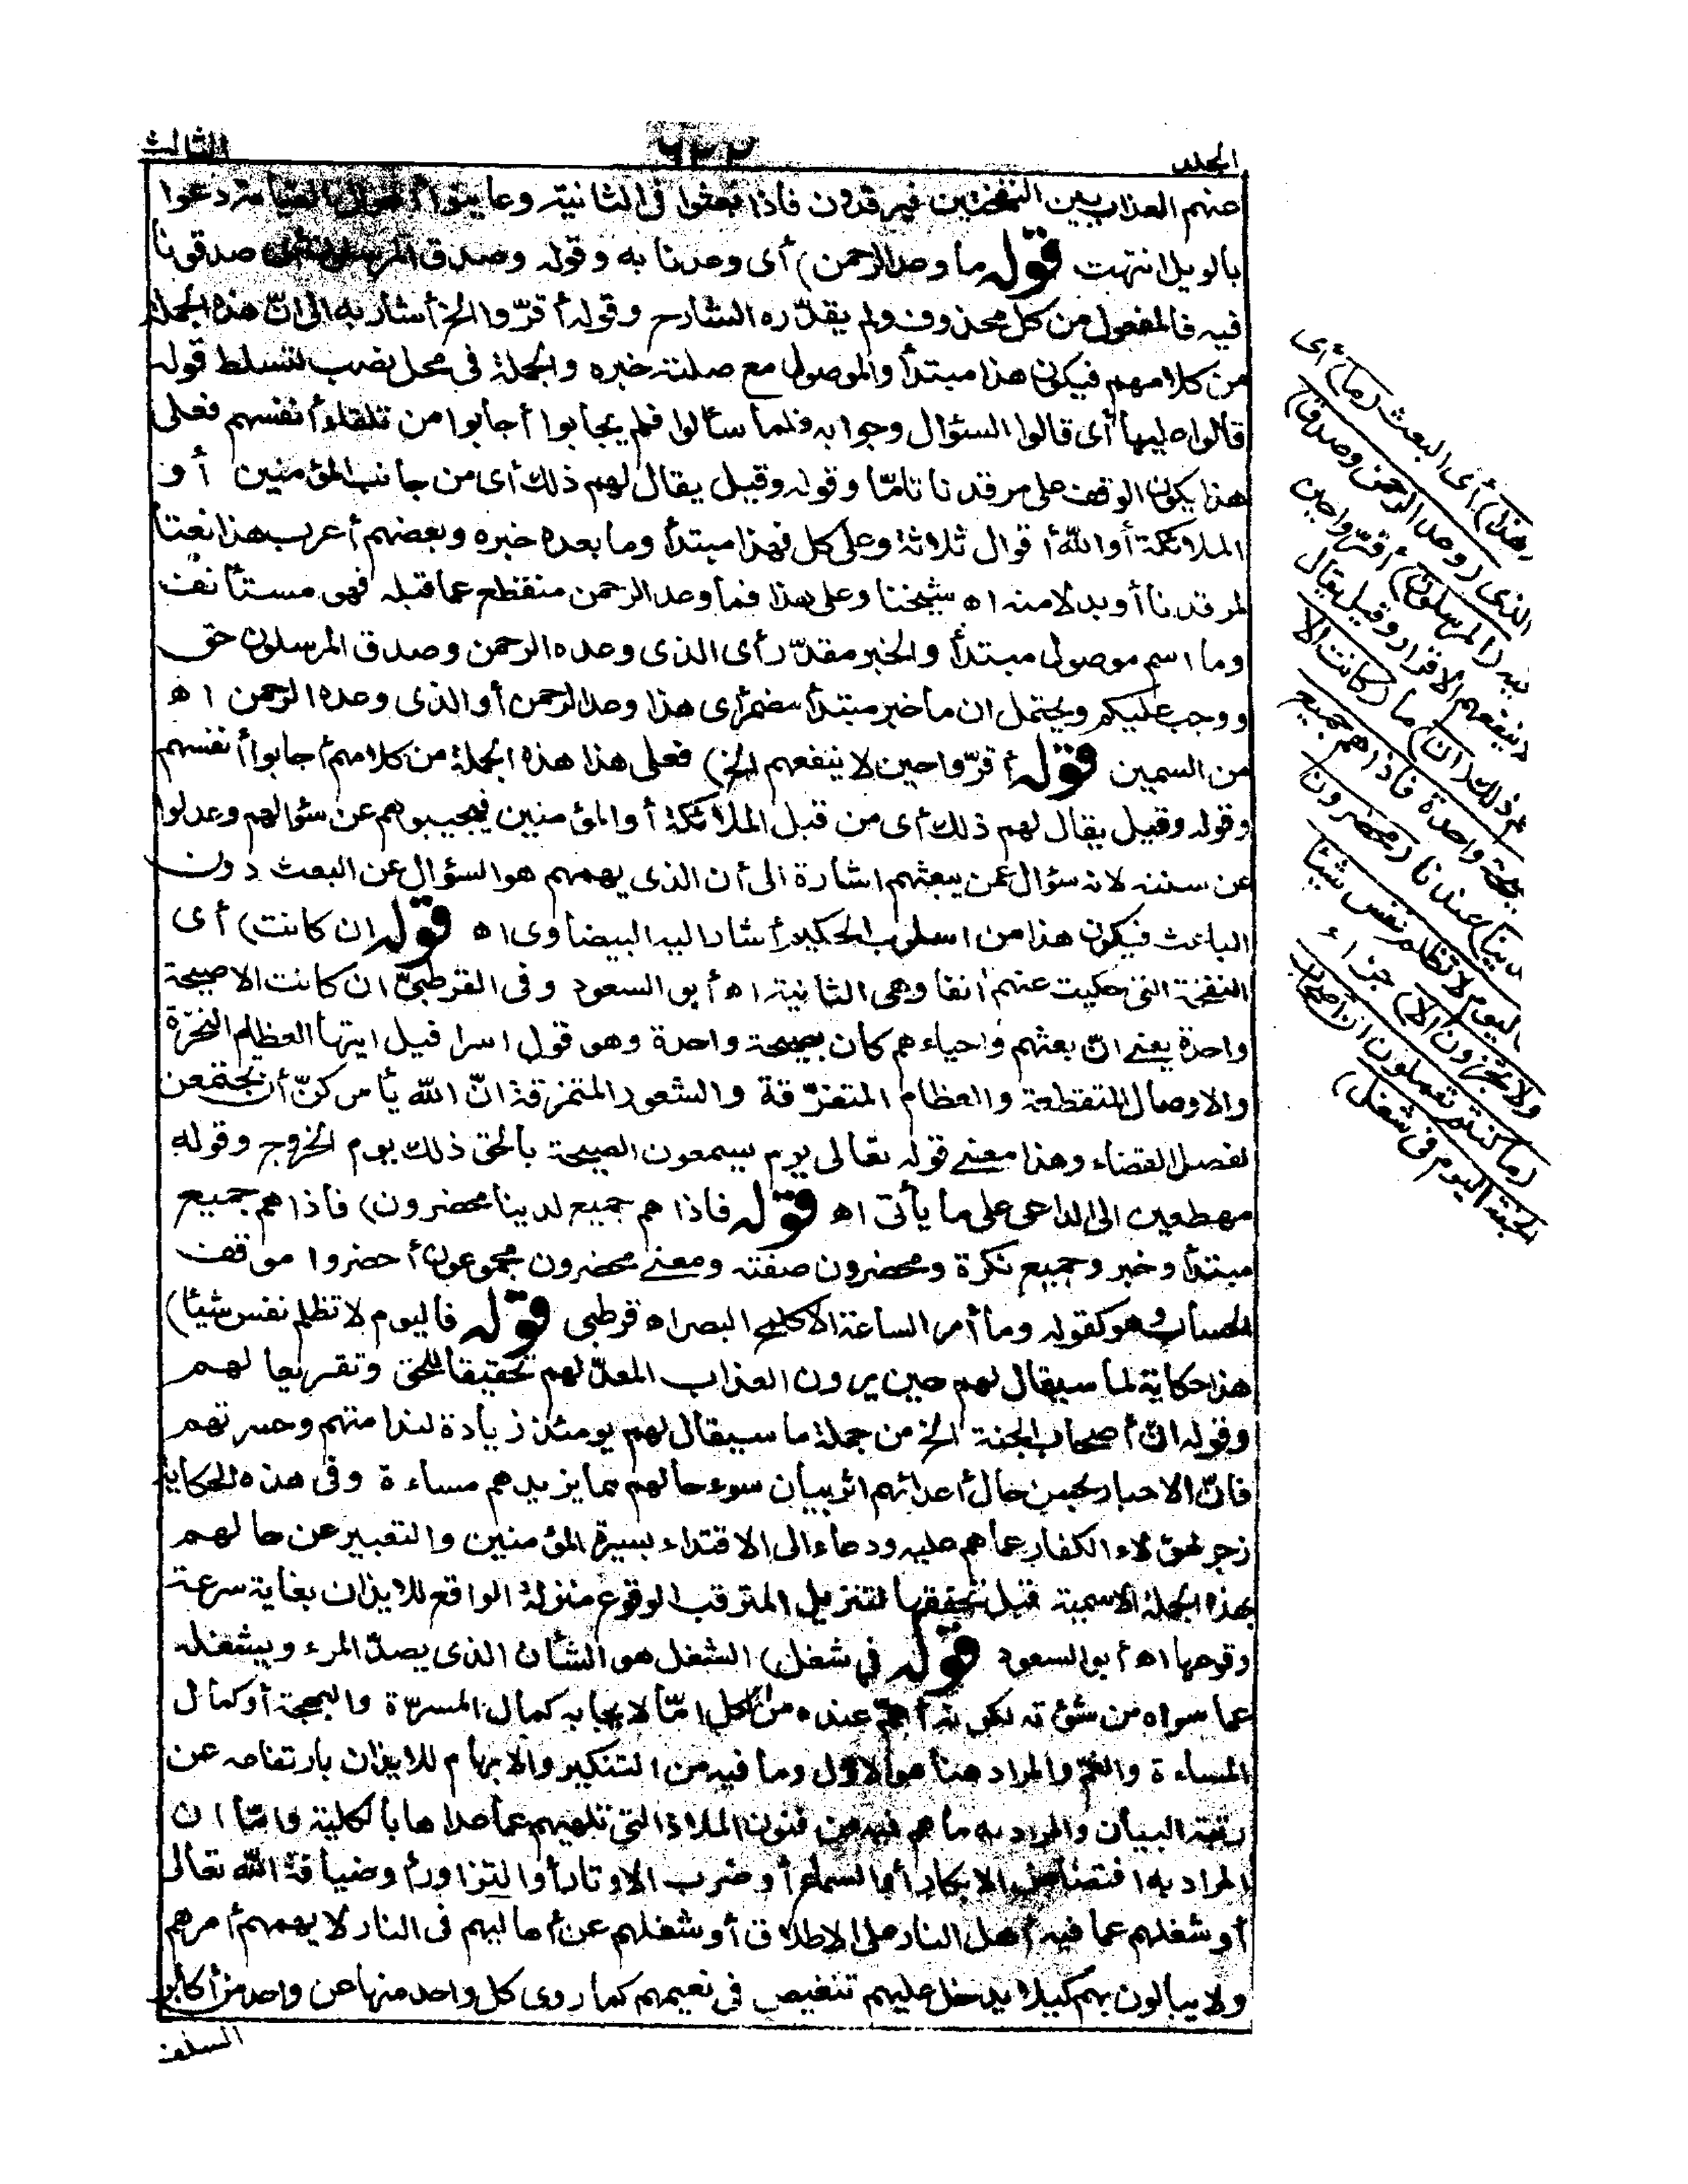 المجلد
٦٢٢
الثالث
عنهم العذاب بين النفختين فيرقدون فاذا بعثوا فى الثانية وعاينوا أهوال القيامة دعوا
بالويل انتهت قوله ما وعد الرحمن) أى وعدنا به وقوله وصدق المرسلون أى صدقونا
فيه فالمفعول من كل محذوف ولم يقدّره الشارح وقوله أقرّوا الخ أشار به الى انّ هذه الجملة
من كلامهم فيكون هذا مبتدأ والموصول مع صلته خبره والجملة فى محل نصب لتسلط قوله
قالوا عليها أى قالوا السؤال وجوابه فلما سألوا فلم يجابوا أجابوا من تلقاء أنفسهم فعلى
هذا يكون الوقف على مرقدنا تامّا وقوله وقيل يقال لهم ذلك أى من جانب المؤمنين أو
الملائكة أو الله أقوال ثلاثة وعلى كل فهذا مبتدأ وما بعده خبره وبعضهم أعرب هذا نعتا
لمرقدنا أو بدلا منه اه شيخنا وعلى هذا فما وعد الرحمن منقطع عما قبله فهى مستأنف
وما اسم موصول مبتدأ والخبر مقدّر أى الذى وعده الرحمن وصدق المرسلون حق
ووجب عليكم ويحتمل ان ما خبر مبتدأ مضمر أى هذا وعد الرحمن أو الذى وعده الرحمن اه
من السمين قوله أقرّوا حين لا ينفعهم الخ) فعلى هذا هذه الجملة من كلامهم أجابوا أنفسهم
وقوله وقيل يقال لهم ذلك أى من قبل الملائكة أو المؤمنين فيجيبوهم عن سؤالهم وعدلوا
عن سننه لانه سؤال عمن يبعثهم اشارة الى أن الذى يهمهم هو السؤال عن البعث دون
الباعث فيكون هذا من اسلوب الحكيم أشار اليه البيضاوى اه قوله ان كانت) أى
النفخة التى حكيت عنهم آنفا وهى الثانية اه أبو السعود وفى القرطبىّ ان كانت الا صيحة
واحدة يعنى انّ بعثهم واحياءهم كان بصيحة واحدة وهو قول اسرافيل ايتها العظام النخرة
والاوصال المتقطعة والعظام المتفرّقة والشعور المتمزقة انّ الله يأمركنّ أن تجتمعن
لفصل القضاء وهذا معنى قوله تعالى يوم يسمعون الصيحة بالحق ذلك يوم الخروج وقوله
مهطعين الى الداعى على ما يأتى اه قوله فاذا هم جميع لدينا محضرون) فاذا هم جميع
مبتدأ وخبر وجميع نكرة ومحضرون صفته ومعنى محضرون مجموعون أحضروا موقف
الحساب وهو كقوله وما أمر الساعة الا كلمح البصر اه قرطبى قوله فاليوم لا تظلم نفس شيئا)
هذا حكاية لما سيقال لهم حين يرون العذاب المعدّ لهم تحقيقا للحق وتقريعا لهم
وقوله انّ أصحاب الجنة الخ من جملة ما سيقال لهم يومئذ زيادة لندامتهم وحسرتهم
فانّ الاخبار بحسن حال أعدائهم اثر بيان سوء حالهم مما يزيدهم مساءة وفى هذه الحكاية
زجر لهؤلاء الكفار عما هم عليه ودعاء الى الاقتداء بسيرة المؤمنين والتعبير عن حالهم
بهذه الجملة الاسمية قبل تحققها لتنزيل المترقب الوقوع منزلة الواقع للايذان بغاية سرعة
وقوعها اه أبو السعود قوله فى شغل) الشغل هو الشأن الذى يصدّ المرء ويشغله
عما سواه من شؤنه لكونه أهمّ عنده من الكل امّا لايجابه كمال المسرّة والبهجة أو كمال
المساءة والغمّ والمراد هنا هو الاوّل وما فيه من التنكير والابهام للايذان بارتفاعه عن
رتبة البيان والمراد به ما هم فيه من فنون الملاذ التى تلهيهم عما عداها بالكلية وامّا ان
المراد به افتضاض الابكار أو السماع أو ضرب الاوتار أو التزاور أو ضيافة الله تعالى
أو شغلهم عما فيه أهل النار على الاطلاق أو شغلهم عن أهاليهم فى النار لا يهمهم أمرهم
ولا يبالون بهم كيلا يدخل عليهم تنغيص فى نعيمهم كما روى كل واحد منها عن واحد من أكابر
السلف
هذا) أى البعث (ما) أى
الذى (وعد الرحمن وصدق)
فيه (المرسلون) أقرّوا حين
لا ينفعهم الاقرار وقيل يقال
لهم ذلك (ان) ما (كانت الا
صيحة واحدة فاذا هم جميع
لدينا) عندنا (محضرون
فاليوم لا تظلم نفس شيئا
ولا تجزون الا) جزاء
(ما كنتم تعملون ان أصحاب
الجنة اليوم فى شغل)